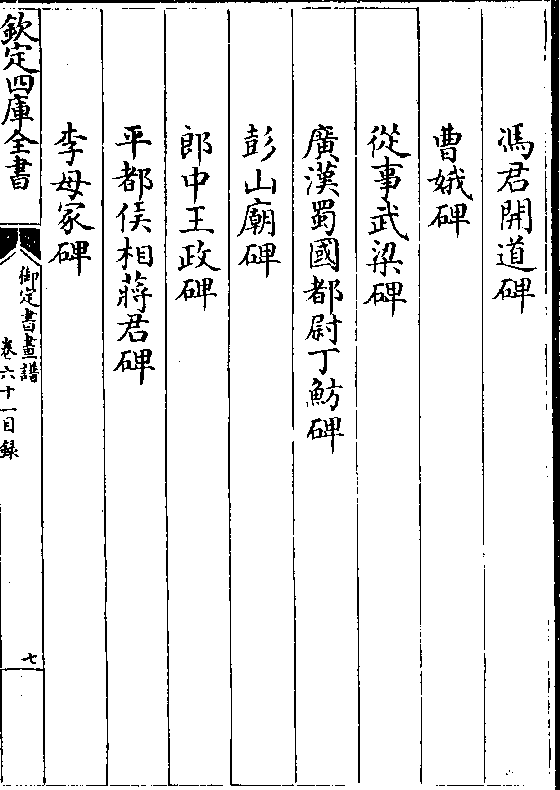 馮君開道碑
曹娥碑
從事武梁碑
廣漢蜀國都尉丁魴碑
彭山廟碑
郎中王政碑
平都侯相蔣君碑
李母冢碑
欽定四庫全書
御定書畫譜
卷六十一目録
七